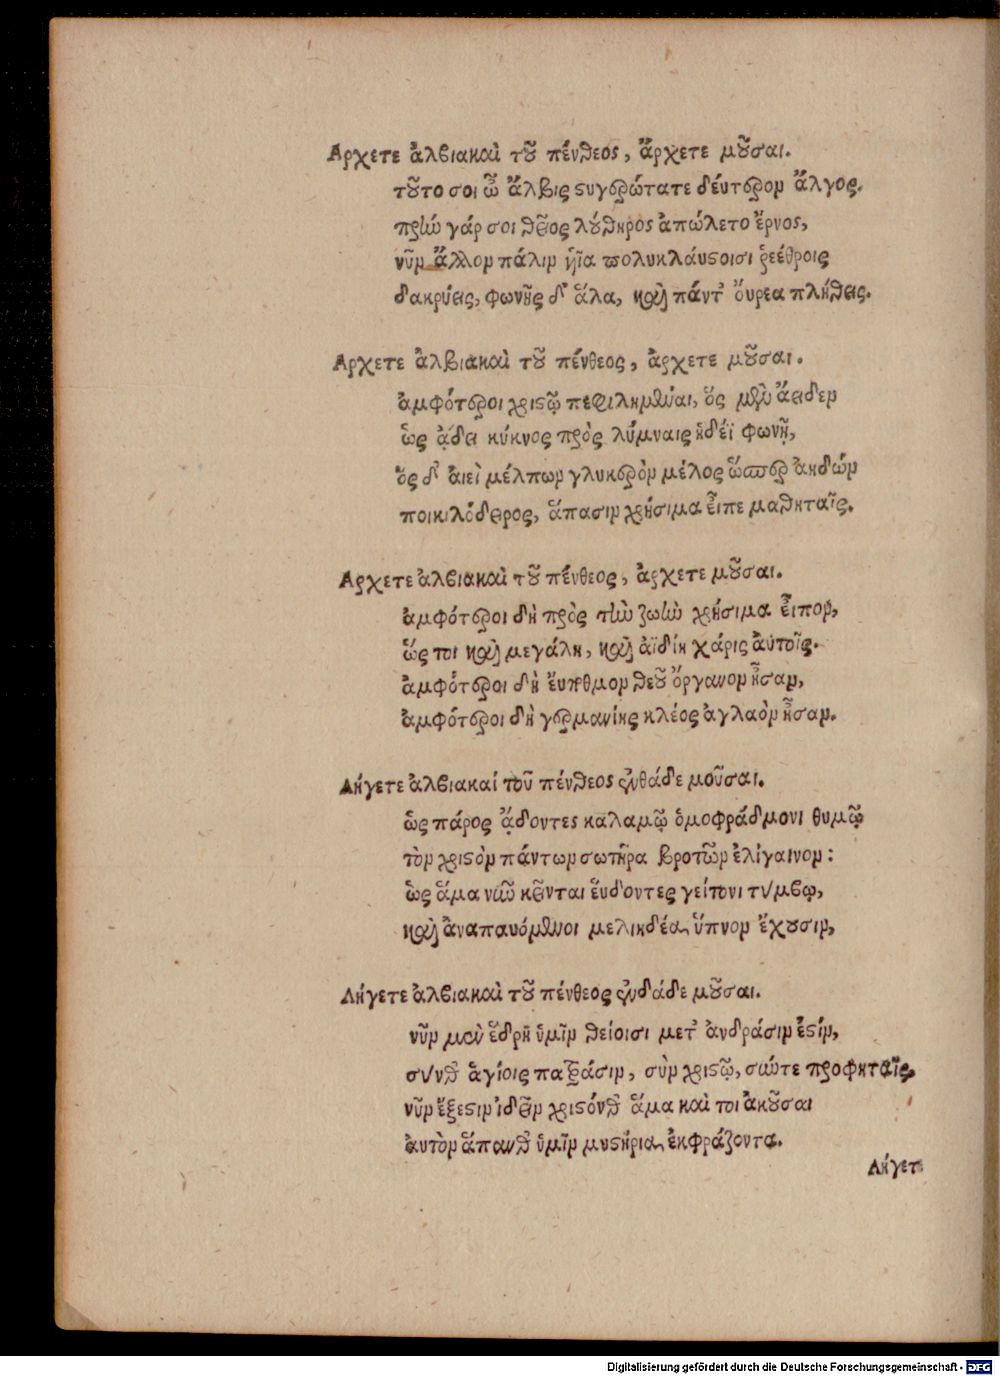 Αρχετε ἀλβιακαὶ τοῦ πένθεος, ἄρχετε μοῦσαι.
τοῦτο σοι ὦ Ἄλβις στυγερώτατε δεύτερον ἄλγος.
πρὶν γάρ σοι θεῖος λούθηρος ἀπώλετο ἔρνος,
νῦν ἄλλον πάλιν ᾗα πολυκλαύστοισι ῥεέθροις
δακρύεις, φωνῆς δ' ἅλα, καὶ πάντ' ὄυρεα πλήθεις.
Αρχετε ἀλβιακαὶ τοῦ πένθεος, ἄρχετε μοῦσαι.
ἀμφότεροι χριστῷ πεφιλημένοι, ὅς μὲν ἄειδεν
ὡς ᾄδει κύκνος πρὸς λύμναις ἡδέϊ φωνῇ,
ὅς δ' ἀιεὶ μέλπων γλυκερὸν μέλος ὥσπερ ἀηδών
ποικιλόδειρος, ἅπασιν χρήσιμα εἶπε μαθηταῖς.
Αρχετε ἀλβιακαὶ τοῦ πένθεος, ἄρχετε μοῦσαι.
ἀμφότεροι δὴ πρὸς τὴν ζωὴν χρήσιμα εἶπον,
ὥς τοι καὶ μεγάλη, καὶ ἀϊδίη χάρις ἀυτοῖς.
ἀμφότεροι δὴ ἔυρηθμον θεοῦ ὄργανον ἦσαν,
ἀμφότεροι δὴ γερμανίης κλέος ἀγλαὸν ἦσαν.
Λήγετε ἀλβιακαί τοῦ πένθεος ἐνθάδε μοῦσαι.
ὡς πάρος ᾄδοντες καλαμῷ ὁμοφράδμονι θυμῷ
τὸν χριστὸν πάντων σωτῆρα βροτῶν ἐλίγαινον:
ὡς ἅμα νῦν κεῖνται ἕυδοντες γείτονι τύμβῳ,
καὶ ἀναπαυόμενοι μελιηδέα ὕπνον ἔχουσιν,
Λήγετε ἀλβιακαὶ τοῦ πένθεος ἐνδάδε μοῦσαι.
νῦν μὲν ἕδρη ὑμῖν θείοισι μετ' ἀνδράσιν ἐστίν,
σύν θ' ἁγίοις πατράσιν, σὺν χριστῷ, σύν τε προφηταῖς,
νῦν ἔξεστιν ἰδεῖν χριστόν θ' ἅμα καὶ τοι ἀκοῦσαι
ἀυτὸν ἅπανθ' ὑμῖν μυστήρια ἐκφράζοντα.
Λήγετε
Digitalisierung gefördert durch die Deutsche Forschungsgemeinschaft - DFG